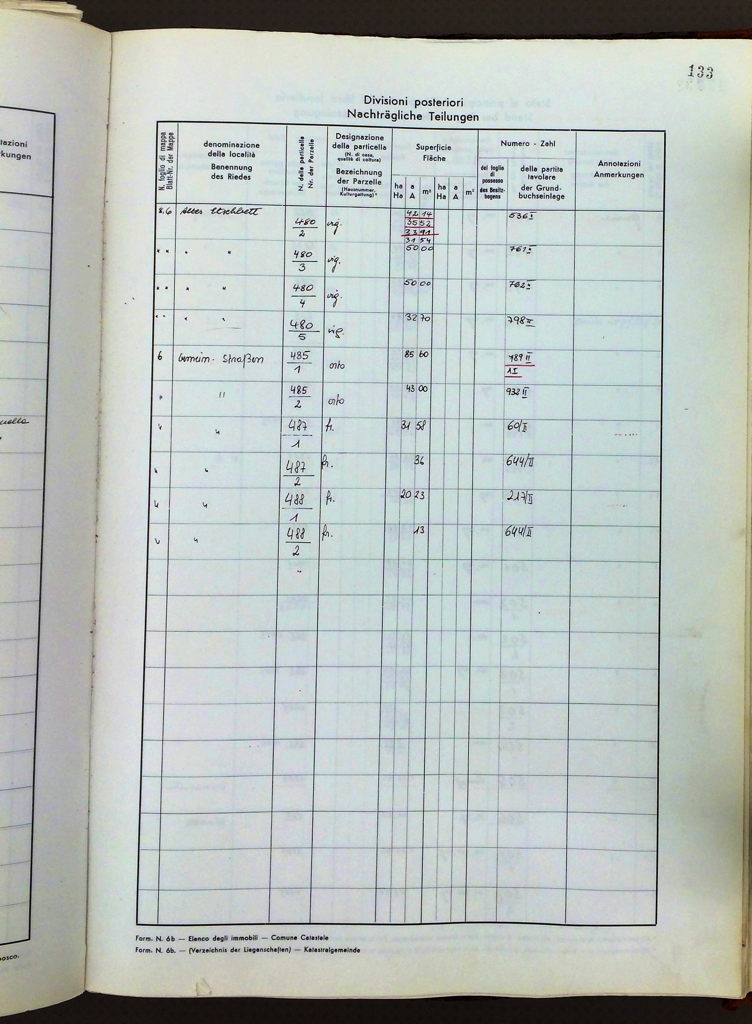 133
Divisioni posteriori
Nachträgliche Teilungen
N. foglio di mappa
Blatt-Nr. der Mappe
denominazione
della località
Benennung
des Riedes
N. delle particelle
Nr. der Parzelle
Designazione
della particella
(N. di casa,
qualità di coltura)
Bezeichnung
der Parzelle
(Hausnummer,
Kulturgattung)
Superficie
Fläche
ha a m² ha a m²
Ha A Ha A
Numero - Zahl
del foglio
di
possesso
des Besitz-
bogens
della partita
tavolare
der Grund-
buchseinlage
Annotazioni
Anmerkungen
8.6 Altes Etschbett 480/2 vig. 42 14 536 I
35 52
33 91
31 54
" " " " 480/3 vig. 50 00 761 I
" " " " 480/4 vig. 50 00 762 I
" " " " 480/5 vig. 32 70 798 II
6 Gemein. Straßen 485/1 orto 85 60 789 II
1 I
" " 485/2 orto 43 00 932 II
" " 487/1 fr. 31 58 60/II
" " 487/2 fr. 36 644/II
" " 488/1 fr. 20 23 217/II
" " 488/2 fr. 13 644/II
Form. N. 6b — Elenco degli immobili — Comune Catastale
Form. N. 6b. — (Verzeichnis der Liegenschaften) — Katastralgemeinde
tazioni
kungen